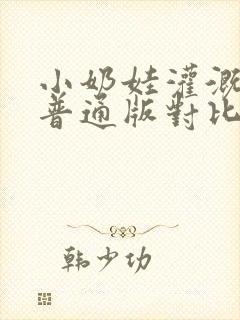 小奶娃灌溉
普通版對比
韩少功